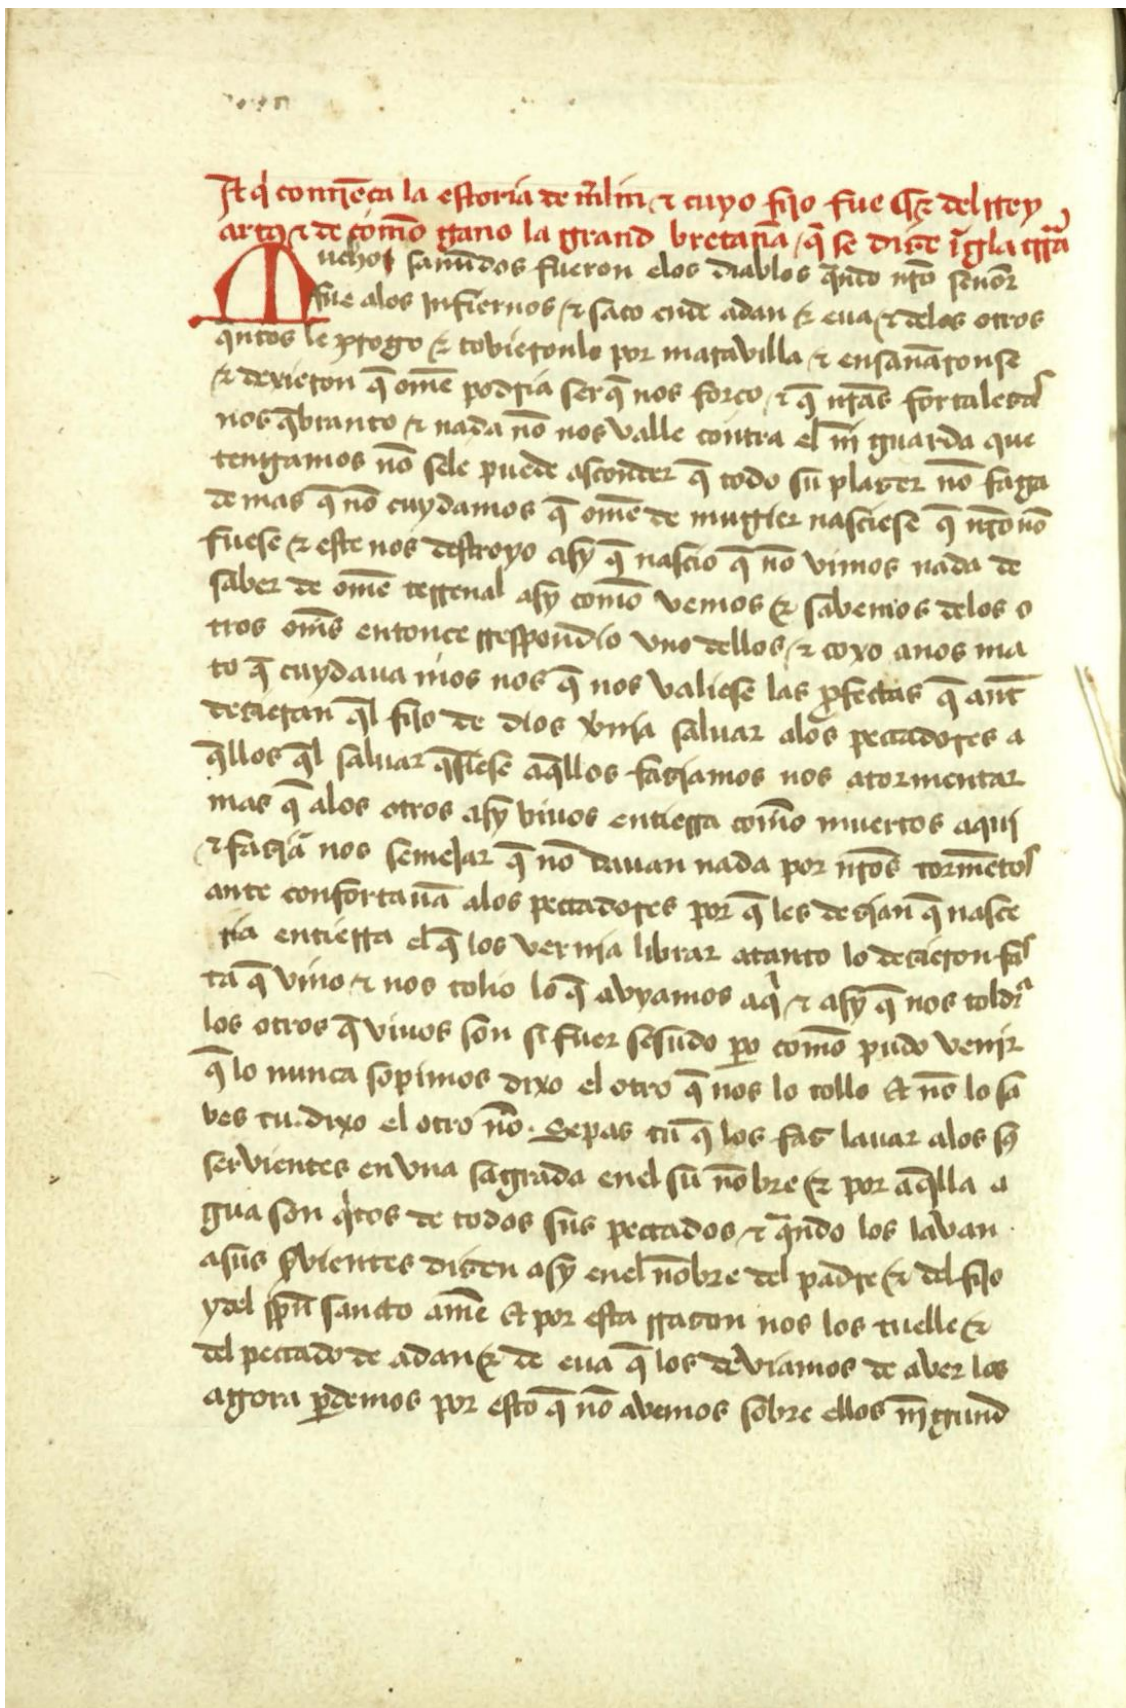 Aq̃ comiẽça la estoria de m̃lin & cuyo fijo fue & del rrey
artq̃ & de cõmo gano la grand bretaña q̃ se dize ĩglat̃rra
Muchos sanũdos fueron elos diablos q̃ndo nr̃o señor
fue alos Infiernos & saco ende adan & eua & delos otros
q̃ntos le progo & tovieronlo por maravilla & ensanãronse
& dexieron q̃ om̃e podria ser q̃ nos forço & q̃ nr̃as fortalesas
nos q̃branto & nada nõ nos valle contra el nĩ guarda que
tengamos nõ sele puede asconder q̃ todo su plazer nõ faga
demas q̃ nõ cuydamos q̃ om̃e de mugier nasciese q̃ nr̃o nõ
fuese & este nos destroyo asy q̃ nascio q̃ nõ vimos nada de
saber de om̃e terrenal asy comõ vemos & sabemos delos o
tros om̃s entonce rrespondio vno dellos & coxo anos ma
to q̃ cuydaua mos nos q̃ nos valiese las p̃fectas q̃ ant̃
dezieran q̃l fijo de dios ṽnia saluar alos peccadores a
q̃llos q̃l saluar q̃siese aq̃llos faziamos nos atormentar
mas q̃ alos otros asy viuos entierra comõ muertos aqui
& faziã nos semejar q̃ nõ dauan nada por nr̃os tormẽtos
ante confortauã alos peccadores por q̃ les dezian q̃ nasce
ria entierra el q̃ los vernia librar atanto lo dezieron fas
ta q̃ vino & nos tolio lo q̃ avyamos aq̃ & asy q̃ nos toldra
los otros q̃ viuos son si fuer sesudo p̃o comõ pudo venir
q̃ lo nunca sopimos dixo el otro q̃ nos lo tollo Et nõ lo sa
bes tu. dixo el otro nõ. Sepas tu q̃ los faz lauar alos s̃
servientes en vna sagrada enel su nõbre & por aq̃lla a
gua son q̃tos de todos sus peccados & q̃ndo los lauan
asus s̃vientes dizen asy enel nõbre del padre & del fijo
y del sp̃u sancto amẽ Et por esta rrazon nos los tuelle &
del peccado de adan & de eua q̃ los deviamos de aver los
agora p̃demos por esto q̃ nõ avemos sobre ellos nĩgund